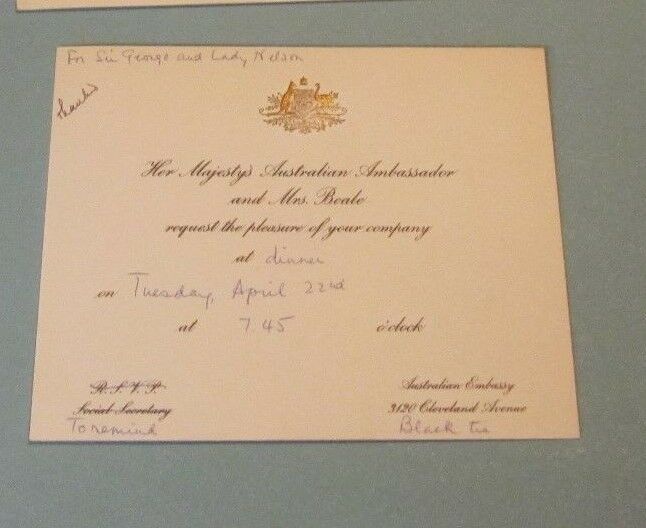 For Sir George and Lady Nelson
thanked
Her Majesty's Australian Ambassador
and Mrs. Beale
request the pleasure of your company
at dinner
on Tuesday, April 22nd
at 7.45 o'clock
R.S.V.P.
Social Secretary
To remind
Australian Embassy
3120 Cleveland Avenue
Black tie